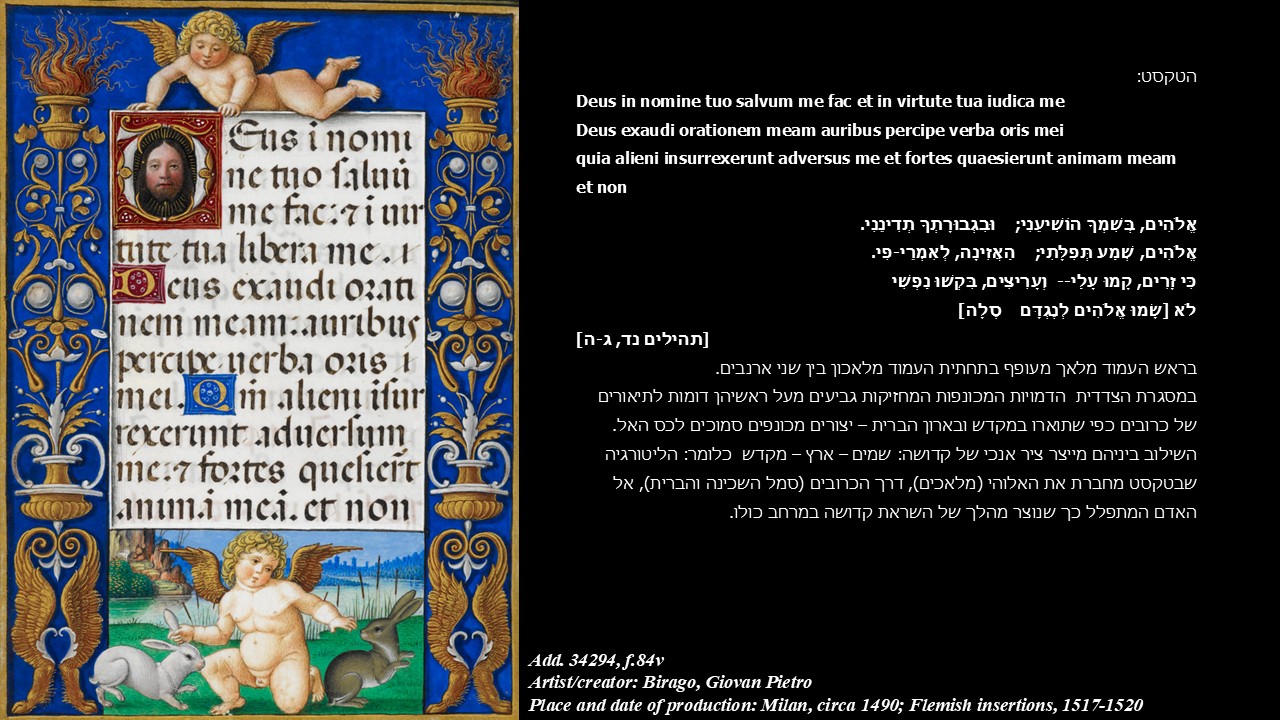 Eus i nomi
ne tuo saluū
me fac: ⁊ i uir
tute tua libera me. i
Deus exaudi orati
nem meam: auribus
percipe uerba oris i
mei. Q m alieni īsur
rexerunt aduersum
me: ⁊ fortes quesierūt
animā meā. et non
הטקסט:
Deus in nomine tuo salvum me fac et in virtute tua iudica me
Deus exaudi orationem meam auribus percipe verba oris mei
quia alieni insurrexerunt adversus me et fortes quaesierunt animam meam
et non
אֱלֹהִים, בְּשִׁמְךָ הוֹשִׁיעֵנִי; וּבִגְבוּרָתְךָ תְדִינֵנִי.
אֱלֹהִים, שְׁמַע תְּפִלָּתִי; הַאֲזִינָה, לְאִמְרֵי-פִי.
כִּי זָרִים, קָמוּ עָלַי-- וְעָרִיצִים, בִּקְשׁוּ נַפְשִׁי
לֹא [שָׂמוּ אֱלֹהִים לְנֶגְדָּם סֶלָה]
[תהילים נד, ג-ה]
בראש העמוד מלאך מעופף בתחתית העמוד מלאכון בין שני ארנבים.
במסגרת הצדדית הדמויות המכונפות המחזיקות גביעים מעל ראשיהן דומות לתיאורים
של כרובים כפי שתוארו במקדש ובארון הברית – יצורים מכונפים סמוכים לכס האל.
השילוב ביניהם מייצר ציר אנכי של קדושה: שמים – ארץ – מקדש כלומר: הליטורגיה
שבטקסט מחברת את האלוהי (מלאכים), דרך הכרובים (סמל השכינה והברית), אל
האדם המתפלל כך שנוצר מהלך של השראת קדושה במרחב כולו.
Add. 34294, f.84v
Artist/creator: Birago, Giovan Pietro
Place and date of production: Milan, circa 1490; Flemish insertions, 1517-1520